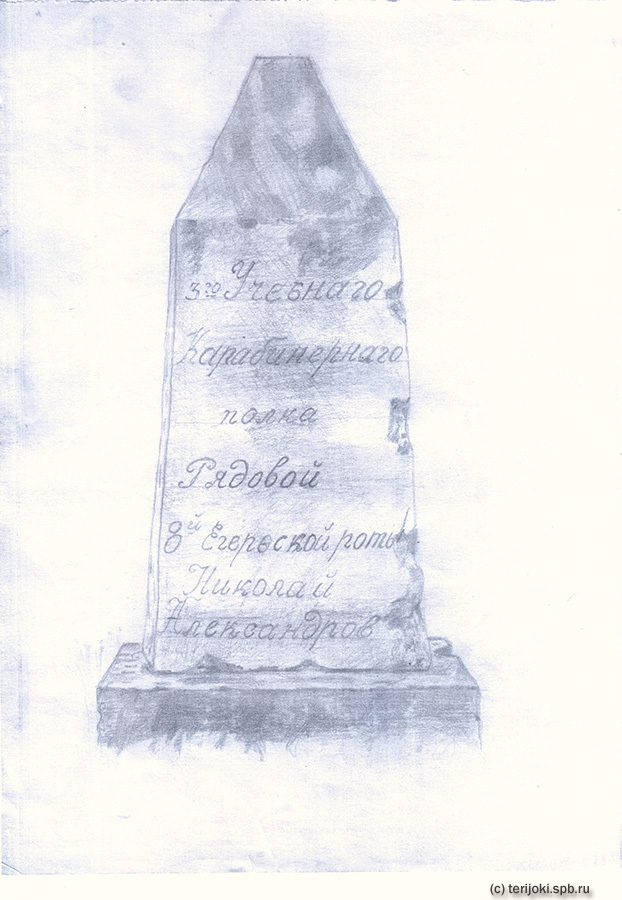 3го Учебнаго
Карабинернаго
полка
Рядовой
8й Егерьской роты
Николай
Александров
(c) terijoki.spb.ru